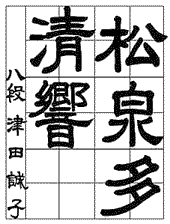 松泉多
清響
八段津田誠子